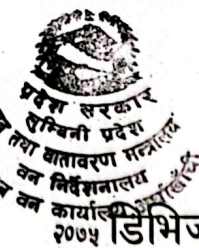 प्रदेश सरकार
लुम्बिनी प्रदेश
तथा वातावरण मन्त्रालय
वन निर्देशनालय
वन कार्यालय
२०७५
डिभिज